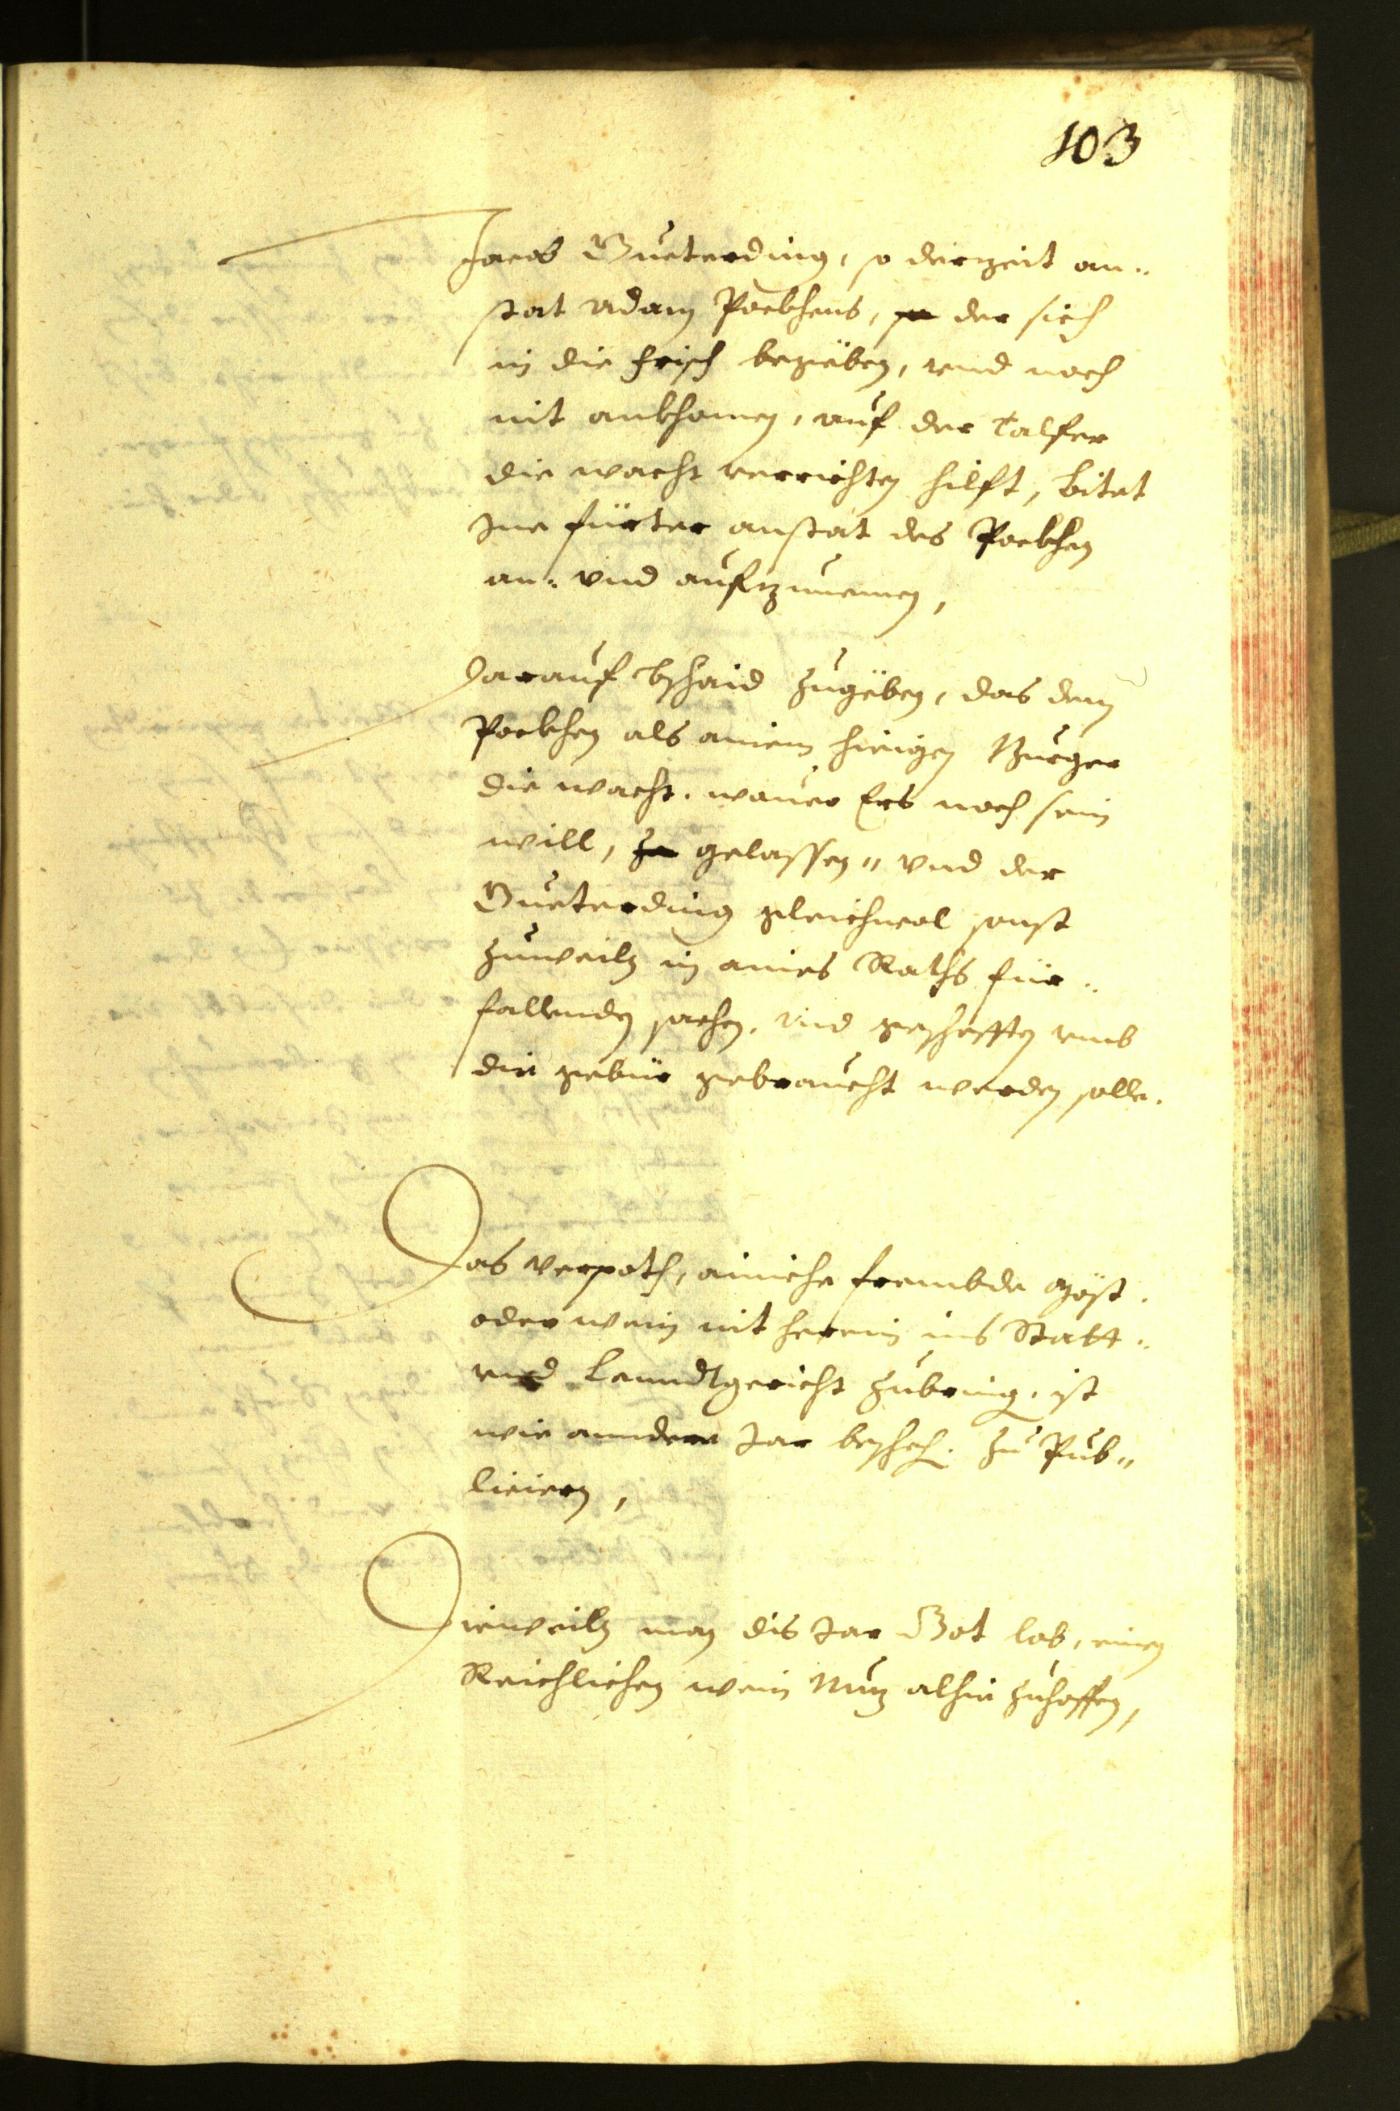 103
Jacob Guetterding, so derzeit an-
stat Adam Pockhens, der sich
in die frisch begëben, vnd noch
nit ankhomen, auf der Talfer
die wacht verrichten hilft, bitet
Ine fürter anstat des Pockhen
an- vnd aufzunemen,
Darauf bschaid zugëben, das dem
Pockhen als ainem hieigen Burger
die wacht, wouer Ers noch sein
will, gelassen, vnd der
Gueterding gleichwol sonst
zuweiln in aines Raths für-
fallenden sachen, vnd geschefften vmb
die gebür gebraucht werden solle.
Das verpoth, ainiche frembde Most
oder wein nit herein ins Statt-
vnd Lanndtgericht zubring. ist
wie anndere Jar bescheh. zu Pub-
liciern,
Dieweiln man dis Jar Got lob, einen
Reichlichen wein Nuz alhie zuhoffen,